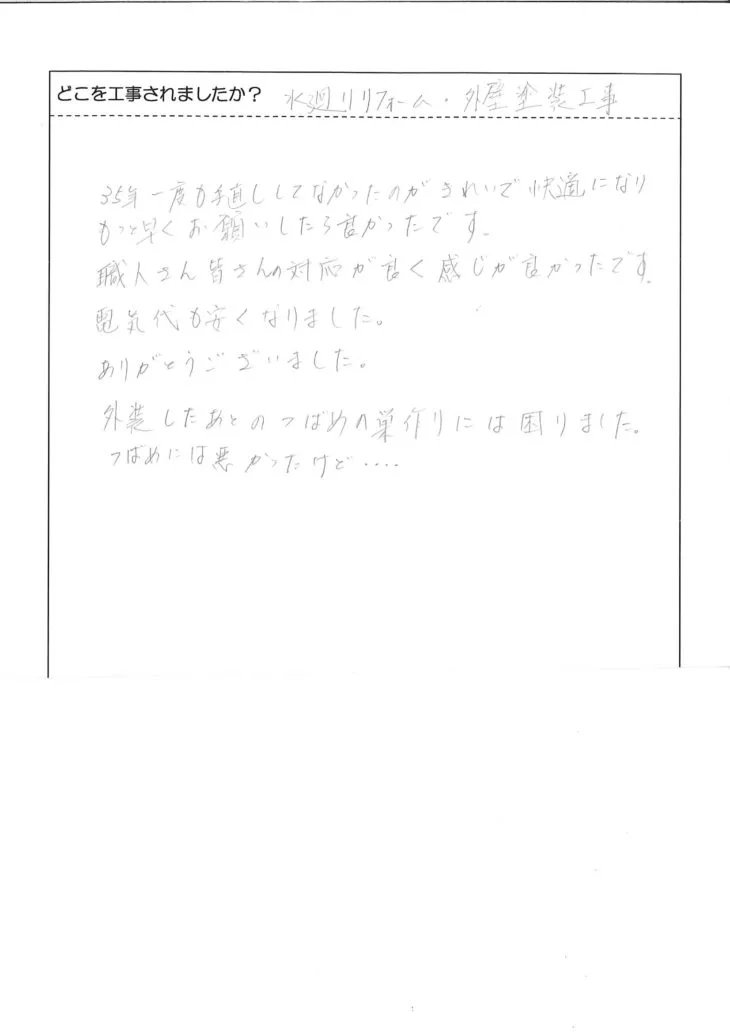 どこを工事されましたか? 水廻りリフォーム・外壁塗装工事
35年一度も手直ししてなかったのがきれいで快適になり
もっと早くお願いしたら良かったです。
職人さん皆さんの対応が良く感じが良かったです。
電気代も安くなりました。
ありがとうございました。
外装したあとのつばめの巣作りには困りました。
つばめには悪かったけど‥‥